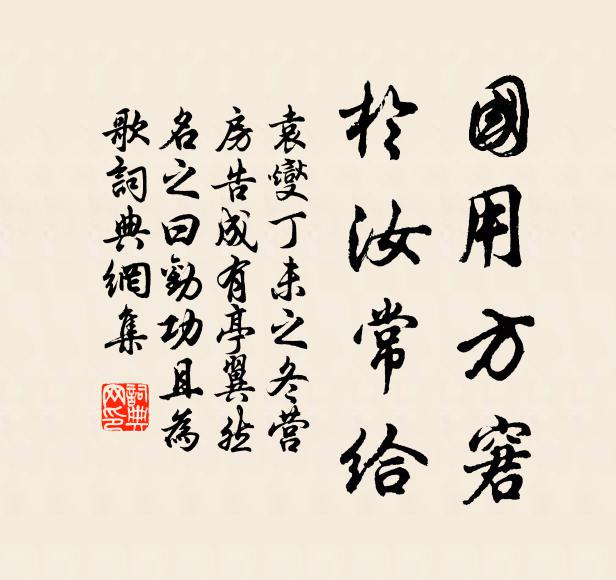 國用方窘
於汝常給
袁燮丁未之冬營
房告成有亭翼然
名之曰勸功且為
歌詞典網集
詞典
网印